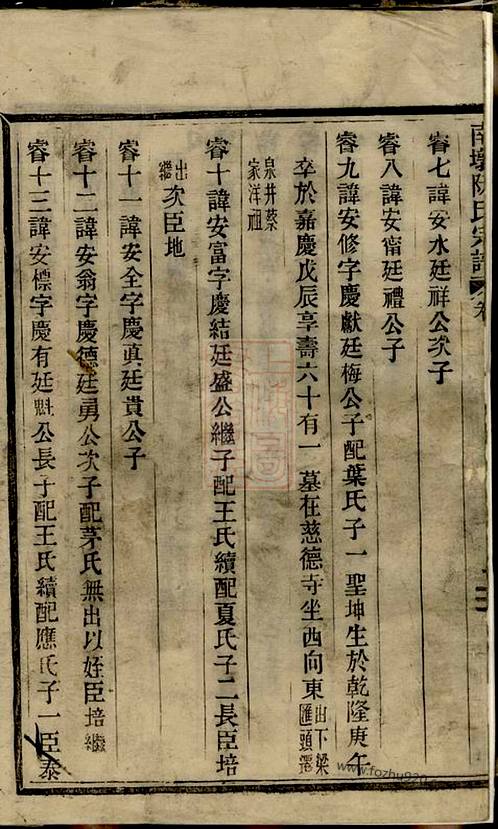 南墩陳氏宗譜
睿七諱安水廷祥公次子
睿八諱安甯廷禮公子
睿九諱安修字慶獻廷梅公子配葉氏子一聖坤生於乾隆庚午
卒於嘉慶戊辰享壽六十有一墓在慈德寺坐西向東出下梁匯頭遷
泉井蔡家洋祖
睿十諱安富字慶結廷盛公繼子配王氏續配夏氏子二長臣培
出繼次臣地
睿十一諱安全字慶真廷貴公子
睿十二諱安翁字慶德廷勇公次子配茅氏無出以姪臣培繼
睿十三諱安標字慶有廷魁公長子配王氏續配應氏子一臣泰